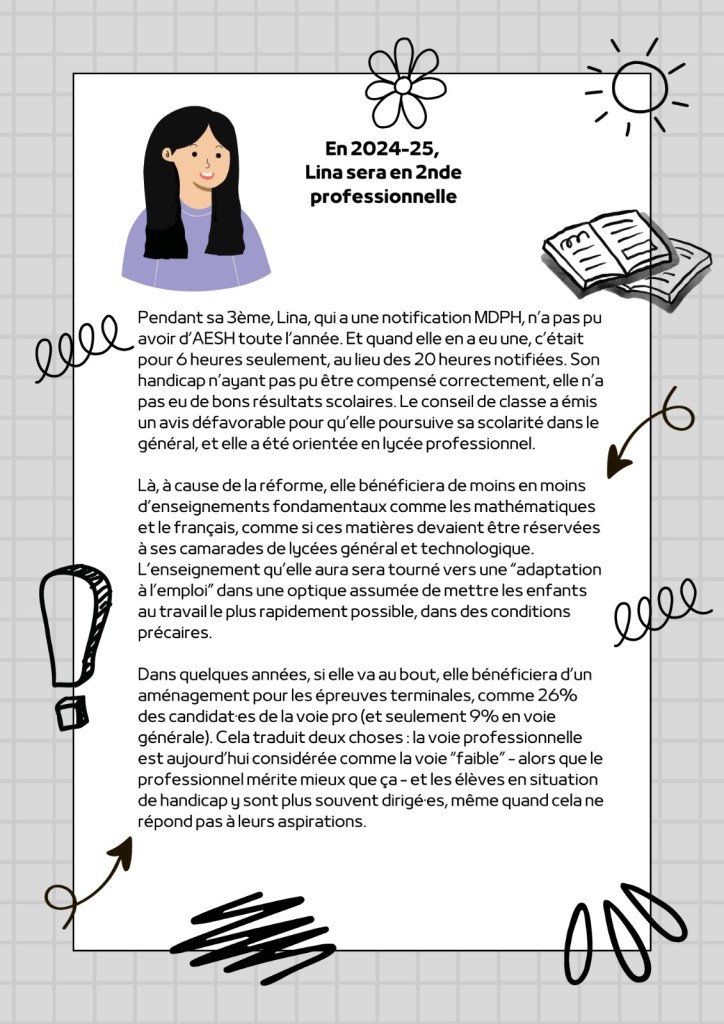 En 2024-25,
Lina sera en 2nde
professionnelle
Pendant sa 3ème, Lina, qui a une notification MDPH, n'a pas pu
avoir d'AESH toute l'année. Et quand elle en a eu une, c'était
pour 6 heures seulement, au lieu des 20 heures notifiées. Son
handicap n'ayant pas pu être compensé correctement, elle n'a
pas eu de bons résultats scolaires. Le conseil de classe a émis
un avis défavorable pour qu'elle poursuive sa scolarité dans le
général, et elle a été orientée en lycée professionnel.
Là, à cause de la réforme, elle bénéficiera de moins en moins
d'enseignements fondamentaux comme les mathématiques
et le français, comme si ces matières devaient être réservées
à ses camarades de lycées général et technologique.
L'enseignement qu'elle aura sera tourné vers une "adaptation
à l'emploi" dans une optique assumée de mettre les enfants
au travail le plus rapidement possible, dans des conditions
précaires.
Dans quelques années, si elle va au bout, elle bénéficiera d'un
aménagement pour les épreuves terminales, comme 26%
des candidat·es de la voie pro (et seulement 9% en voie
générale). Cela traduit deux choses : la voie professionnelle
est aujourd'hui considérée comme la voie "faible" - alors que le
professionnel mérite mieux que ça - et les élèves en situation
de handicap y sont plus souvent dirigé·es, même quand cela ne
répond pas à leurs aspirations.